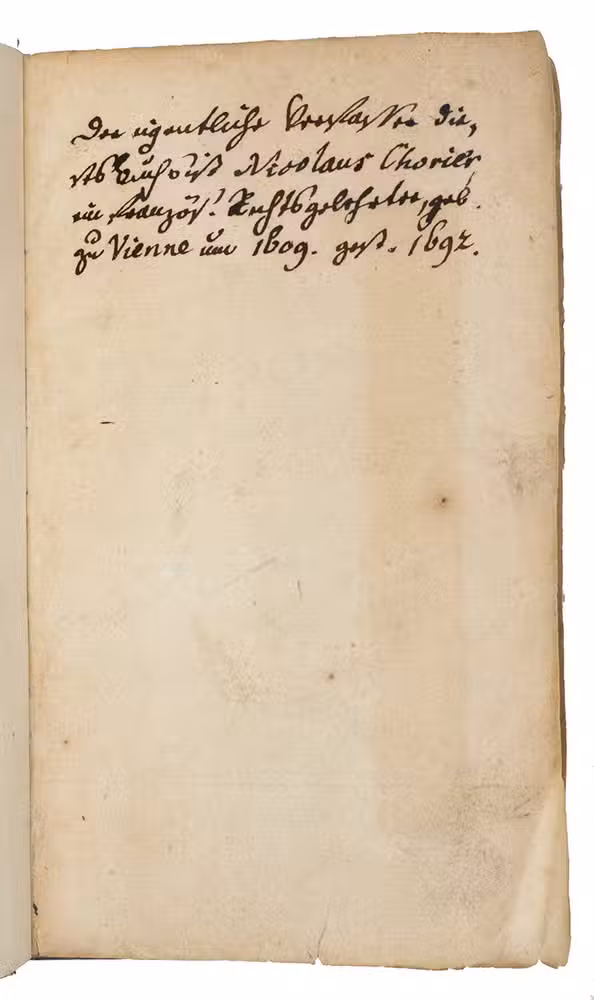 Der eigentliche Verfasser die,
ses Buchs ist Nicolaus Chorier,
ein französ. Rechtsgelehrter, geb.
zu Vienne um 1609. gest. 1692.